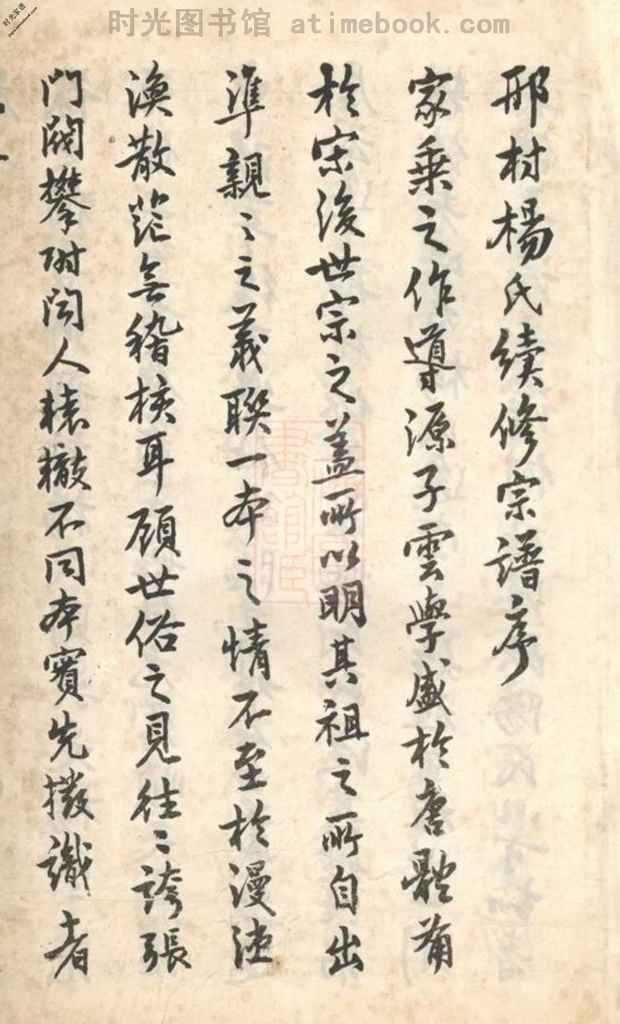 时光图书馆 atimebook.com
邢村楊氏續修宗譜序
家乘之作導源子雲學盛於唐體
於宋後世宗之盖所以明其祖之所自出
準親〻之義聯一本之情不至於漫
渙散茫無稽核耳顧世俗之見往〻誇張
門閥攀附聞人轅轍不同本實先撥識者